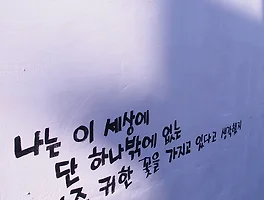 나는 이 세상에
단 하나밖에 없는
귀한 꽃을 가지고 있다고 생각했지